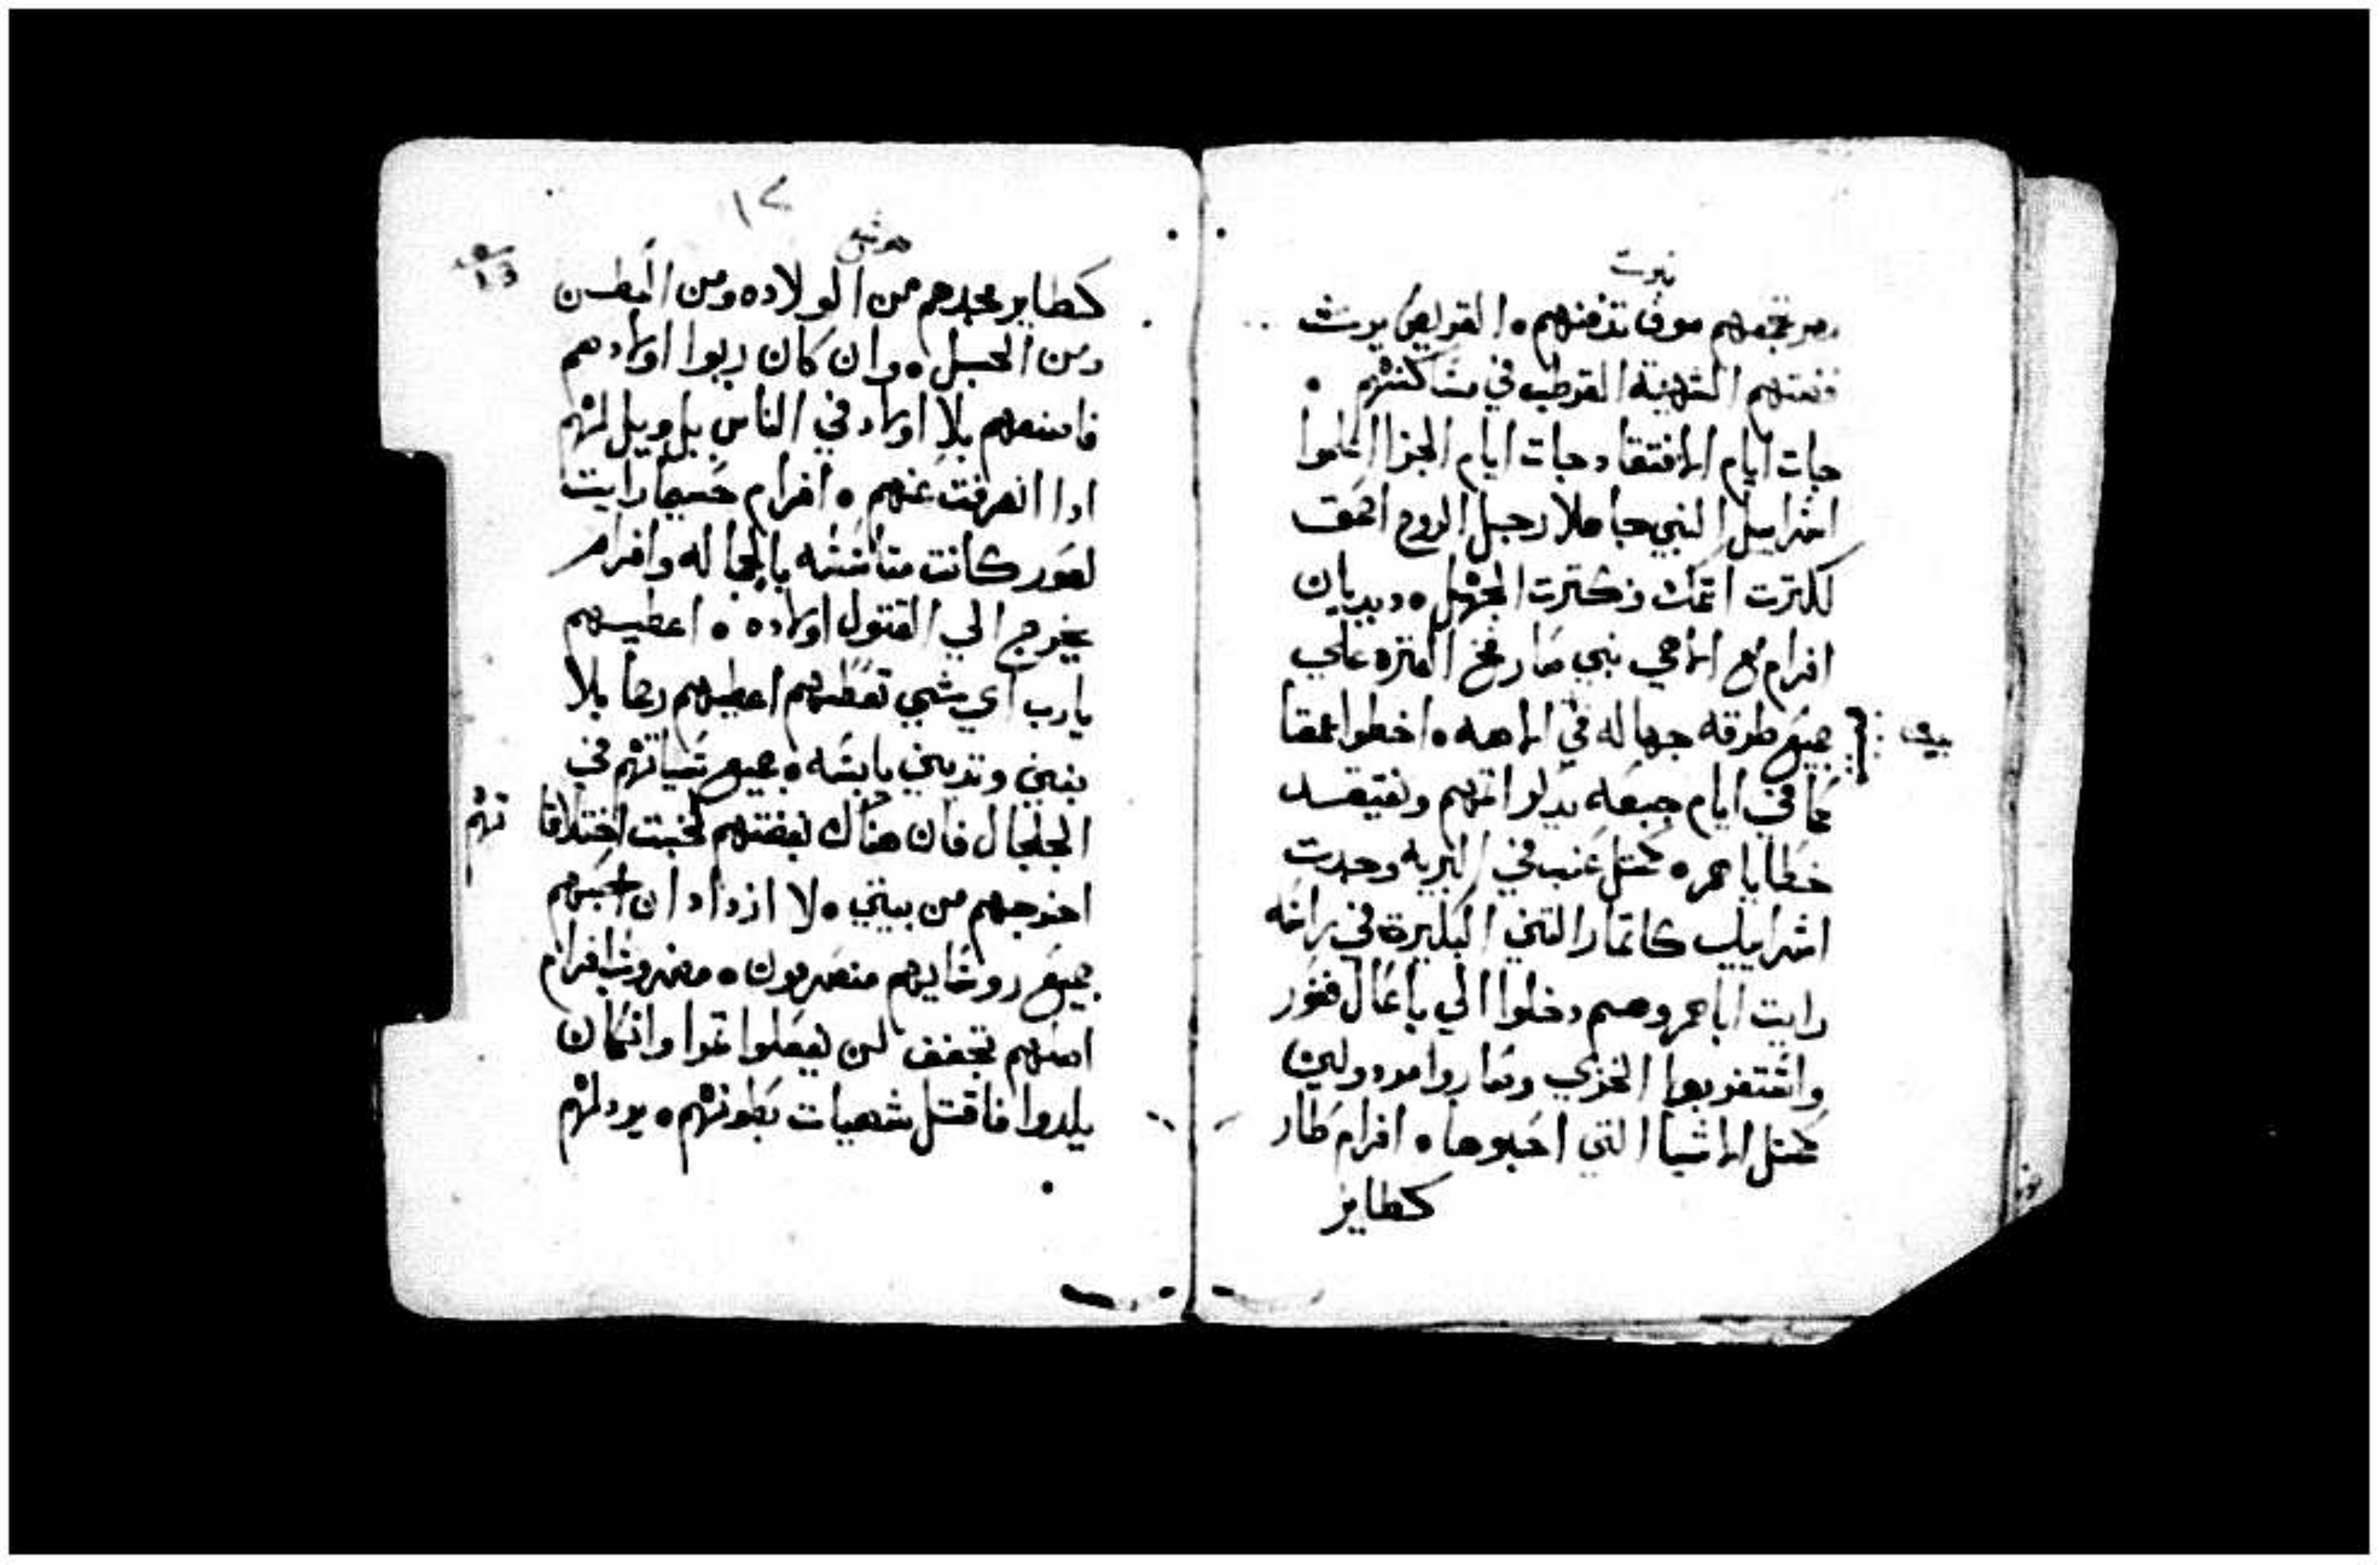 نبوت
مصر تجمعهم موف تدفنهم ۰ القريص يرث
فضتهم الشهية القرطب في مساكنهم ۰
جات ايام الافتقاد جات ايام الجزا اعلموا
اسراييل النبي جاهلا رجل الروح احمق
لكثرت اتمك وكثرت الجهل ۰ ديدبان
افرام مع الاهي نبي صار فخ العثره علي
جميع طرقه جهاله في الاهه ۰ اخطوا عمقا
كما في ايام جبعه يدكر اتمهم ونفتقد
خطاياهم ۰ كمثل عنب في البريه وجدت
اسراييل كاتمار التين البكيرة في
رايت اباهم وهم دخلوا الي باعال فغور
واستغربوا الخزي وصاروا مردولين
كمثل الاشيا التي احبوها ۰ افرام طار
كطاير
١٢
هوشع
كطاير مجدهم من الولاده ومن البطن
ومن الحبل ۰ وان كان ربوا اولادهم
فاصنعهم بلا اولاد في الناس بل ويل لهم
ادا انصرفت عنهم ۰ افرام حسبما رايت
لصور كانت متاسسه بالجماله وافرام
يخرج الي القتول اولاده ۰ اعطيهم
يارب اي شي تعطيهم اعطيهم رحما بلا
بنين وتديين يابسه ۰ جميع سياتهم في
الجلجال فان هناك بغضتهم لخبت اختلاقاتهم
اخرجهم من بيتي ۰ لا ازداد ان احبهم
جميع روسايهم منصرفون ۰ مضروب افرام
اصلهم تجفف لن يعملوا تمرا وان كان
يلدوا فاقتل شهيات بطونهم ۰ يردلهم